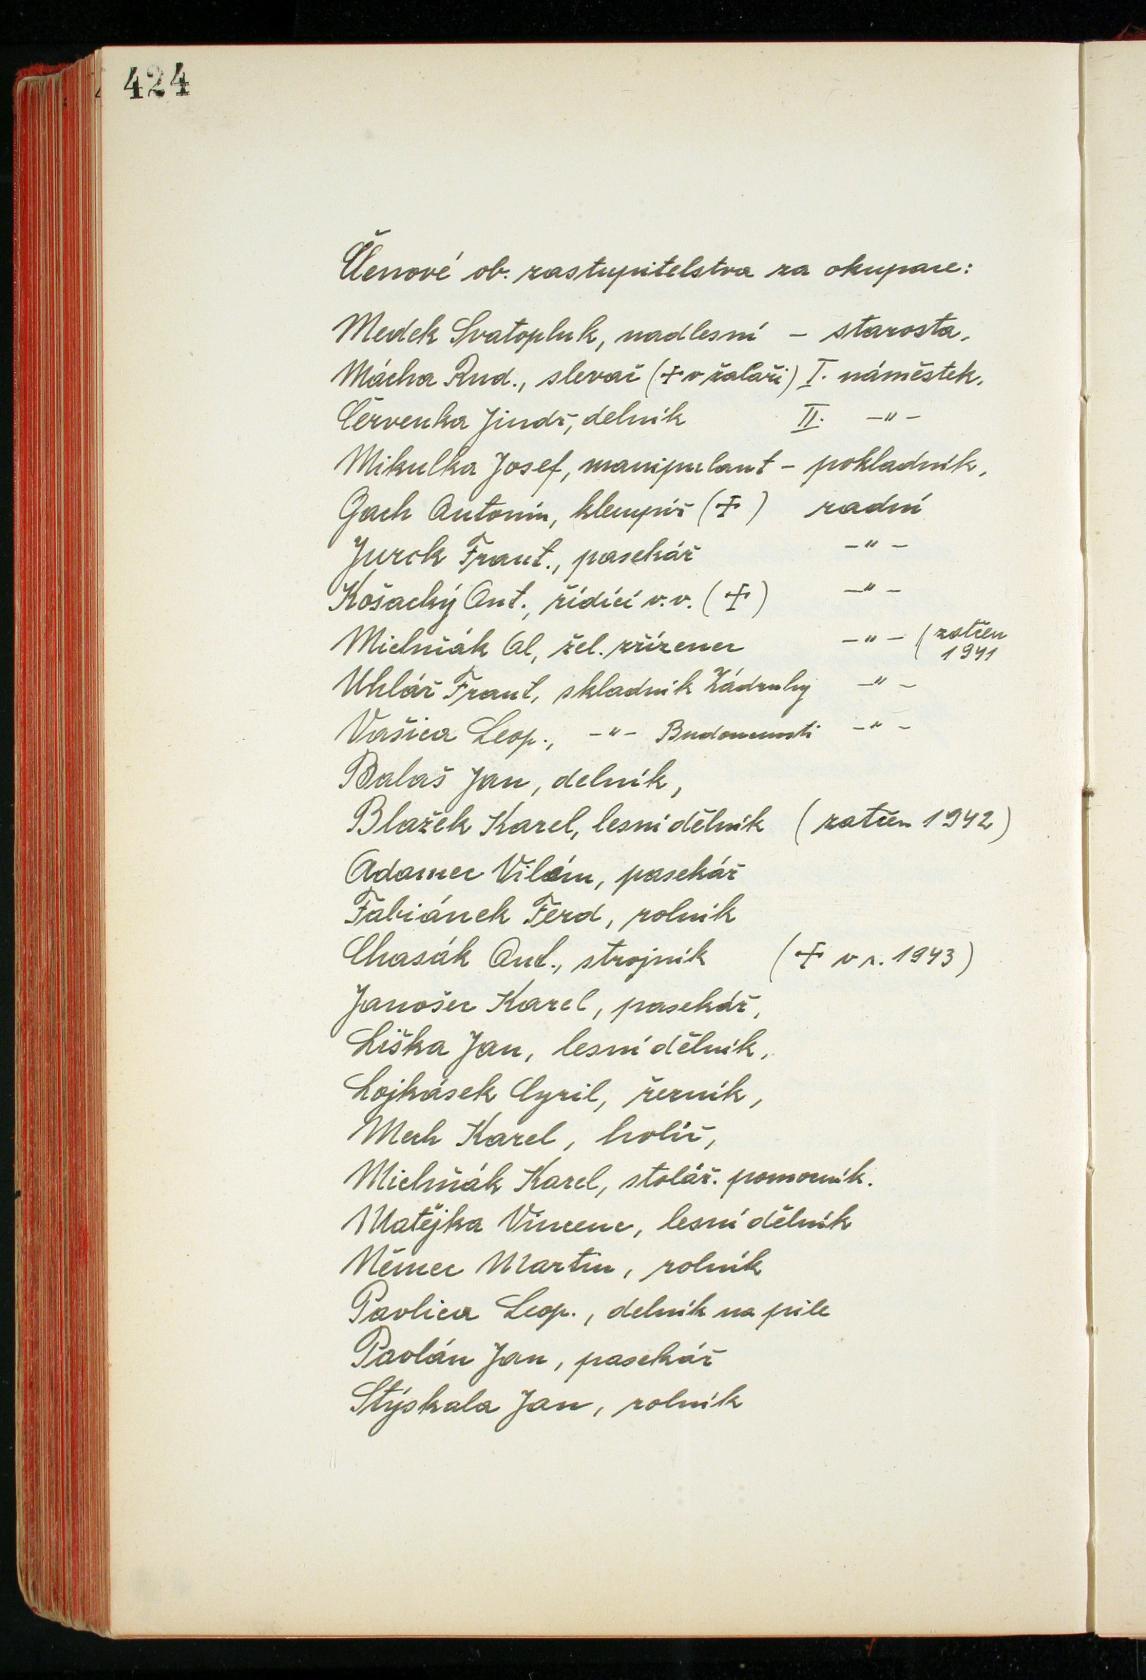 424
Členové ob. zastupitelstva za okupace:
Medek Svatopluk, nadlesní – starosta.
Mácha Rud., slevač (✝ v žaláři) I. náměstek.
Červenka Jindř, delník II. –"–
Mikulka Josef, manipulant – pokladník,
Gach Antonín, klempíř (✝) radní
Jurek Frant., pasekář –"–
Košacký Ant., řídící v.v. (✝) –"–
Mielnčák Al, žel. zřízenec –"– (zatčen 1941
Uhlář Frant, skladník Zádruhy –"–
Vašica Leop., –"– Budoucnosti –"–
Balaš Jan, delník,
Blažek Karel, lesní dělník (zatčen 1942)
Adamec Vilém, pasekář
Fabiánek Ferd, rolník
Chasák Ant., strojník (✝ v r. 1943)
Janošec Karel, pasekář,
Liška Jan, lesní dělník,
Lojkásek Cyril, řezník,
Mech Karel, holič,
Mielnčák Karel, stolář. pomocník.
Matějka Vincenc, lesní dělník
Němec Martin, rolník
Pavlica Leop., delník na pile
Pavlán Jan, pasekář
Stýskala Jan, rolník